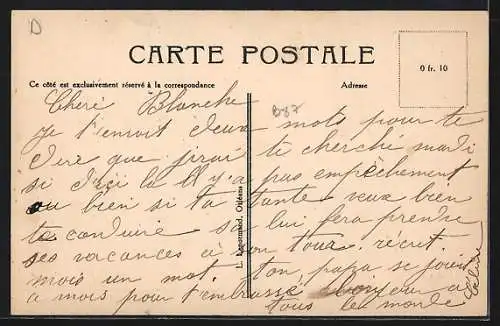 D
CARTE POSTALE
0 fr. 10
Ce côté est exclusivement réservé à la correspondance
Adresse
887
Cheré Blanche
je t'envoit deux mots pour te
dire que jirai te cherché mardi
si d'ici la Il y'a pas empêchement
ou bien si ta tante veux bien
te conduire sa lui fera prendre
ses vacances à son tour. récrit
mois un mot. ton papa se joint
a mois pour t'embrassé, bonjour a
tous le monde
L. Lenormand, Orléans